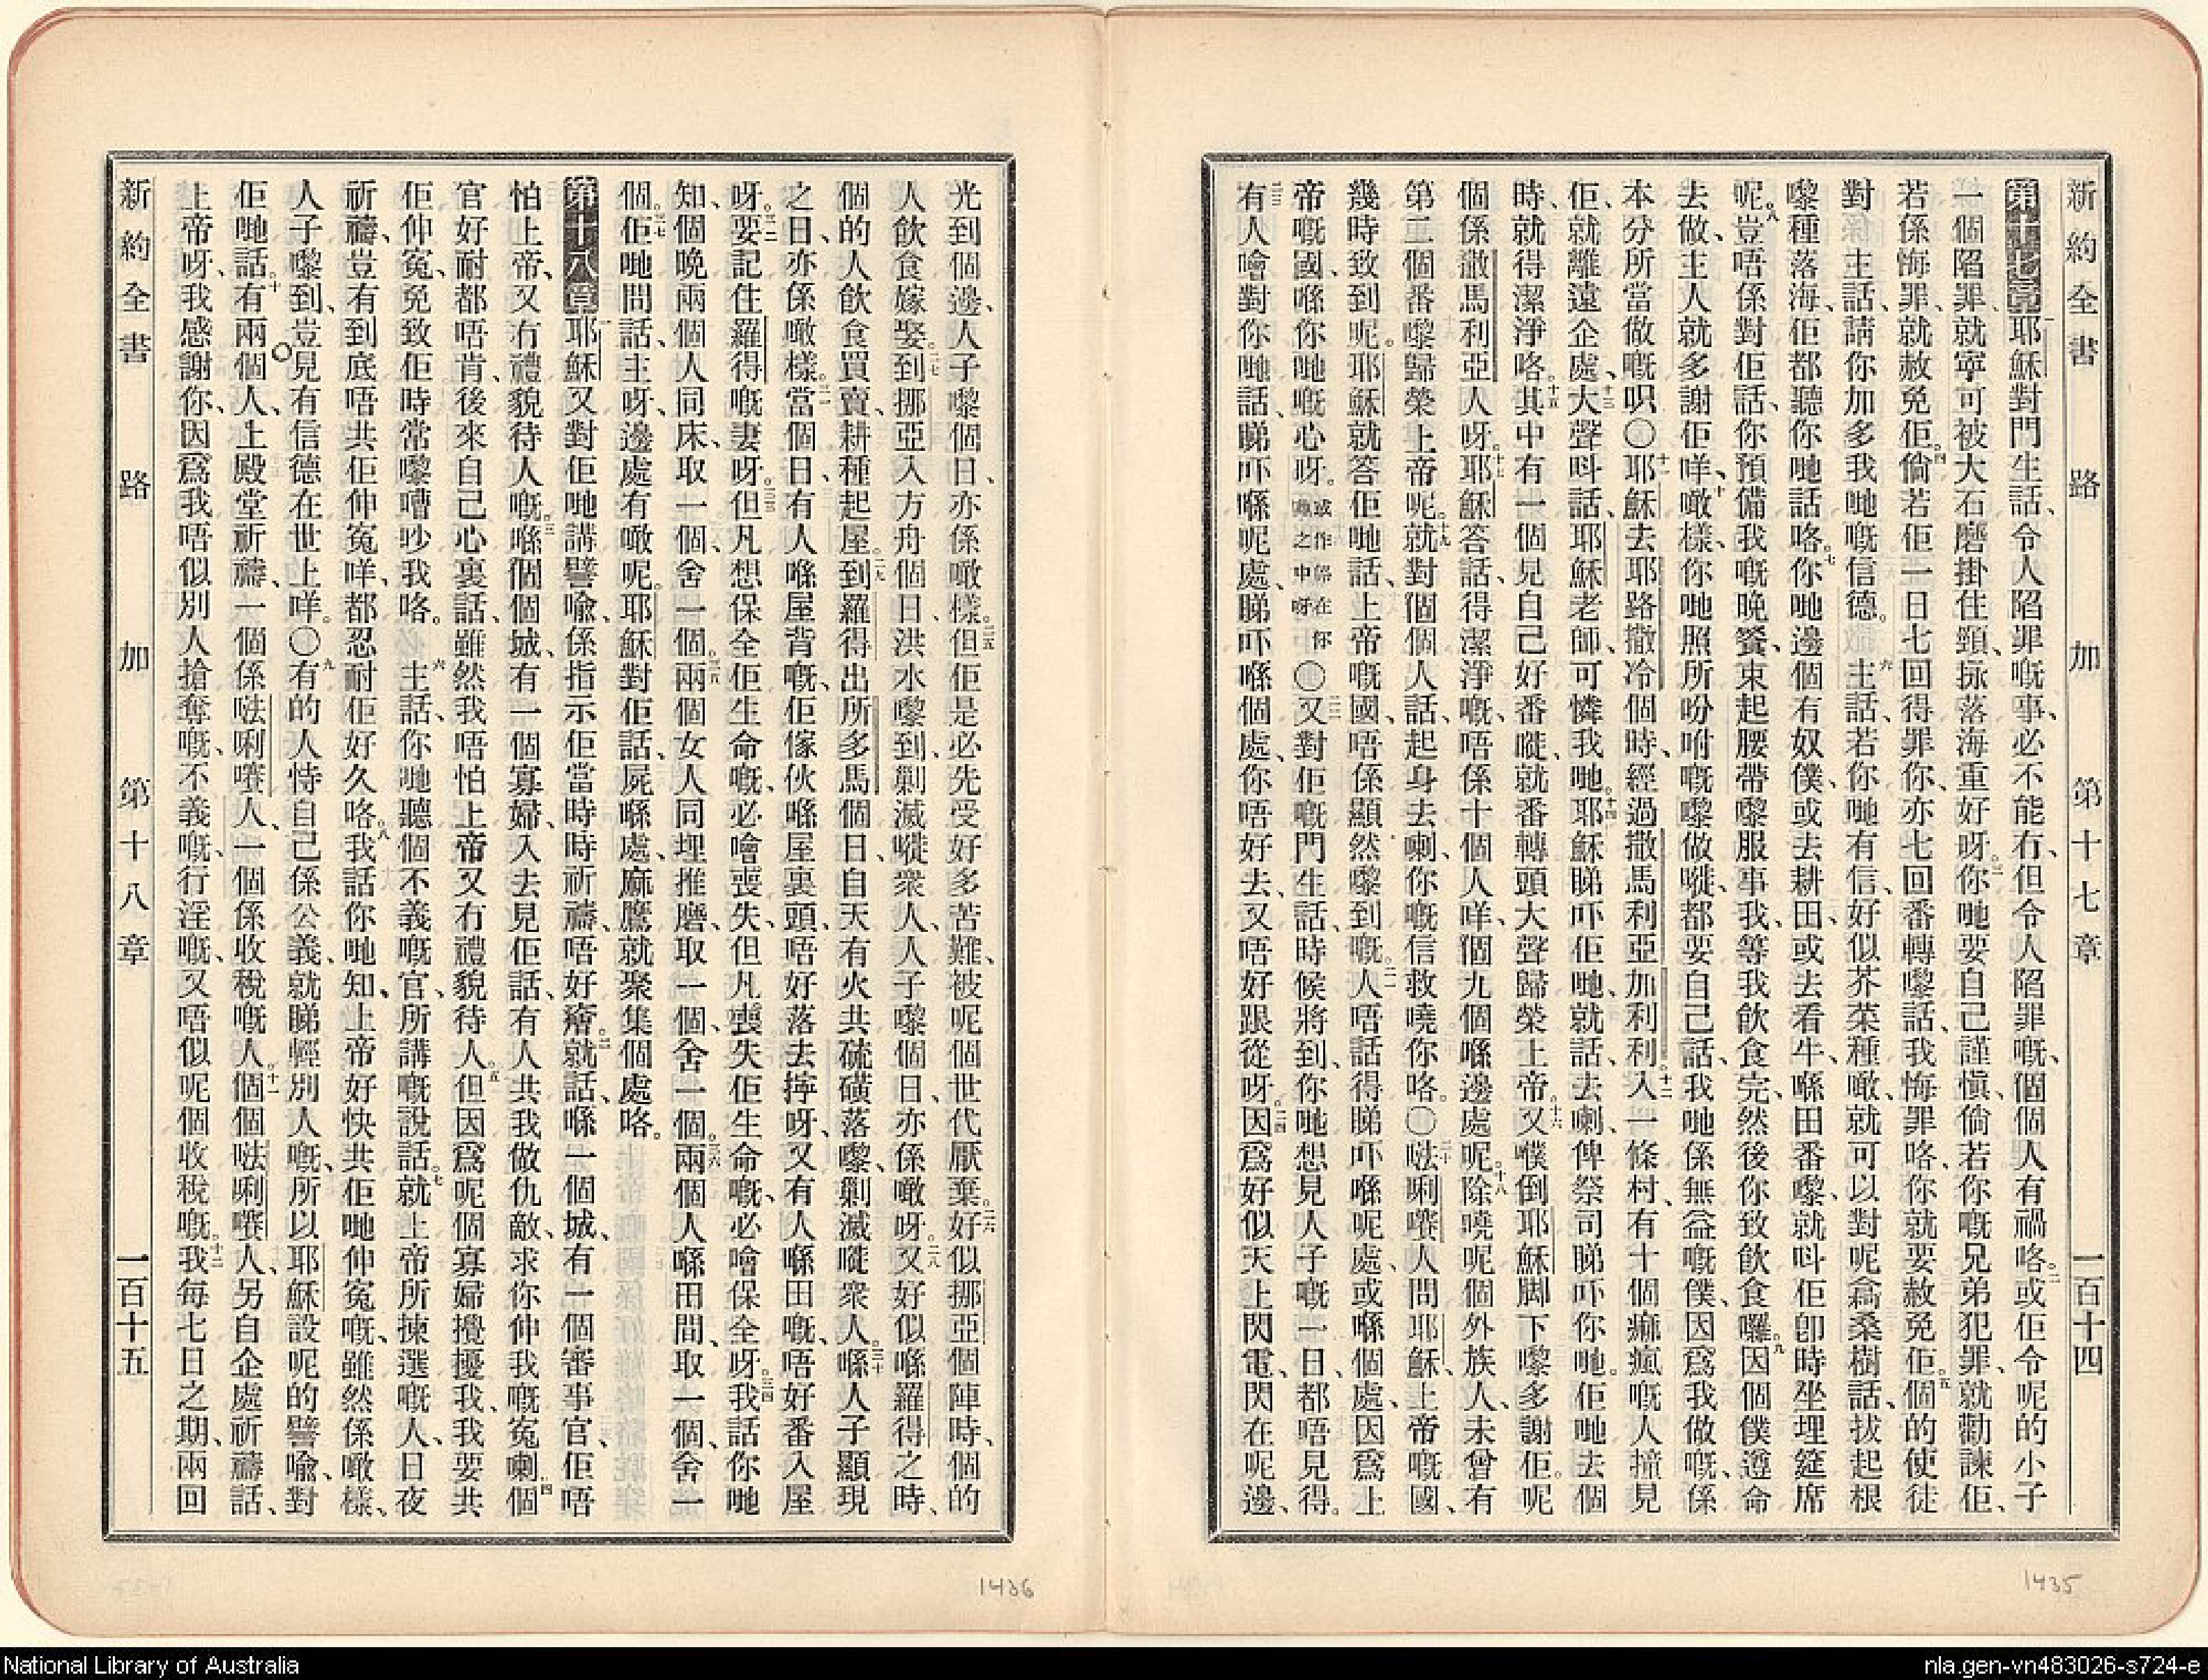 新約全書 路加 第十七章 一百十四
第十七章 一耶穌對門生話、令人陷罪嘅事、必不能冇、但令人陷罪嘅、個個人有禍咯。二或佢令呢的小子
一個陷罪、就寧可被大石磨掛住頸、㧒落海重好呀。三你哋要自己謹愼、倘若你嘅兄弟犯罪、就勸諫佢、
若係悔罪、就赦免佢。四倘若佢一日七回得罪你、亦七回番轉嚟話、我悔罪咯、你就要赦免佢。五個的使徒
對 主話、請你加多我哋嘅信德。 六主話、若你哋有信、好似芥菜種噉、就可以對呢喬桑樹話、拔起根
嚟種落海、佢都聽你哋話咯。七你哋邊個有奴僕、或去耕田、或去看牛、喺田番嚟、就呌佢卽時坐埋筵席
呢。八豈唔係對佢話、你預備我嘅晚餐、束起腰帶嚟服事我、等我飲食完、然後你致飲食囉。九因個僕遵命
去做、主人就多謝佢咩、十噉樣、你哋照所吩咐嘅嚟做嘥、都要自己話、我哋係無益嘅僕、因爲我做嘅、係
本分所當做嘅呮〇十一耶穌去耶路撒冷個時、經過撒馬利亞加利利。十二入一條村、有十個痲瘋嘅人撞見
佢、就離遠企處、十三大聲呌話、耶穌老師、可憐我哋。十四耶穌睇吓佢哋、就話、去喇、俾祭司睇吓你哋。佢哋去個
時、就得潔淨咯。十五其中有一個、見自己好番嘥、就番轉頭大聲歸榮上帝。十六又㒒倒耶穌脚下嚟多謝佢。呢
個係撒馬利亞人呀。十七耶穌答話、得潔淨嘅、唔係十個人咩、個九個喺邊處呢。十八除嘵呢個外族人、未曾有
第二個番嚟歸榮上帝呢。十九就對個個人話、起身去喇、你嘅信救嘵你咯。〇二十㗳唎㘔人問耶穌、上帝嘅國、
幾時致到呢。耶穌就答佢哋話、上帝嘅國、唔係顯然嚟到嘅。二一人唔話得睇吓喺呢處、或喺個處、因爲上
帝嘅國、喺你哋嘅心呀。或作係在你哋之中呀〇二二又對佢嘅門生話、時候將到、你哋想見人子嘅一日、都唔見得。
二三有人噲對你哋話、睇吓喺呢處、睇吓喺個處、你唔好去、又唔好跟從呀。二四因爲好似天上閃電、閃在呢邊、
光到個邊、人子嚟個日、亦係噉樣。二五但佢是必先受好多苦難、被呢個世代厭棄。二六好似挪亞個陣時、個的
人飲食嫁娶。二七到挪亞入方舟個日、洪水嚟到、剿滅嘥衆人、人子嚟個日、亦係噉呀。二八又好似喺羅得之時、
個的人飲食買賣、耕種起屋。二九到羅得出所多馬個日、自天有火共硫磺落嚟、剿滅嘥衆人。三十喺人子顯現
之日、亦係噉樣。三一當個日、有人喺屋背嘅、佢傢伙喺屋裏頭、唔好落去擰呀、又有人喺田嘅、唔好番入屋
呀。三二要記住羅得嘅妻呀。三三但凡想保全佢生命嘅、必噲喪失、但凡喪失佢生命嘅、必噲保全呀。三四我話你哋
知、個晚兩個人同床、取一個、舍一個。三五兩個女人同埋推磨、取一個、舍一個。三六兩個人喺田間、取一個、舍一
個。三七佢哋問話、主呀、邊處有噉呢。耶穌對佢話、屍喺處、麻鷹就聚集個處咯。
第十八章 一耶穌又對佢哋講譬喩、係指示佢當時時祈禱、唔好癐。二就話、喺一個城、有一個審事官、佢唔
怕上帝、又冇禮貌待人嘅。三喺個個城、有一個寡婦、入去見佢話、有人共我做仇敵、求你伸我嘅冤喇。四個
官好耐都唔肯、後來自己心裏話、雖然我唔怕上帝、又冇禮貌待人。五但因爲呢個寡婦攪擾我、我要共
佢伸冤、免致佢時常嚟嘈吵我咯。 六主話、你哋聽個不義嘅官、所講嘅說話。七就上帝所揀選嘅人、日夜
祈禱、豈有到底唔共佢伸冤咩、都忍耐佢好久咯。八我話你哋知、上帝好快共佢哋伸冤嘅、雖然係噉樣、
人子嚟到、豈見有信德在世上咩。〇九有的人恃自己係公義、就睇輕別人嘅、所以耶穌設呢的譬喩、對
佢哋話。十有兩個人、上殿堂祈禱、一個係㗳唎㘔人、一個係收稅嘅人。十一個個㗳唎㘔人、另自企處祈禱話、
上帝呀、我感謝你、因爲我唔似別人搶奪嘅、不義嘅、行淫嘅、又唔似呢個收稅嘅。十二我每七日之期、兩回
新約全書 路加 第十八章 一百十五
1436
1435
National Library of Australia
nla.gen-vn483026-s724-e